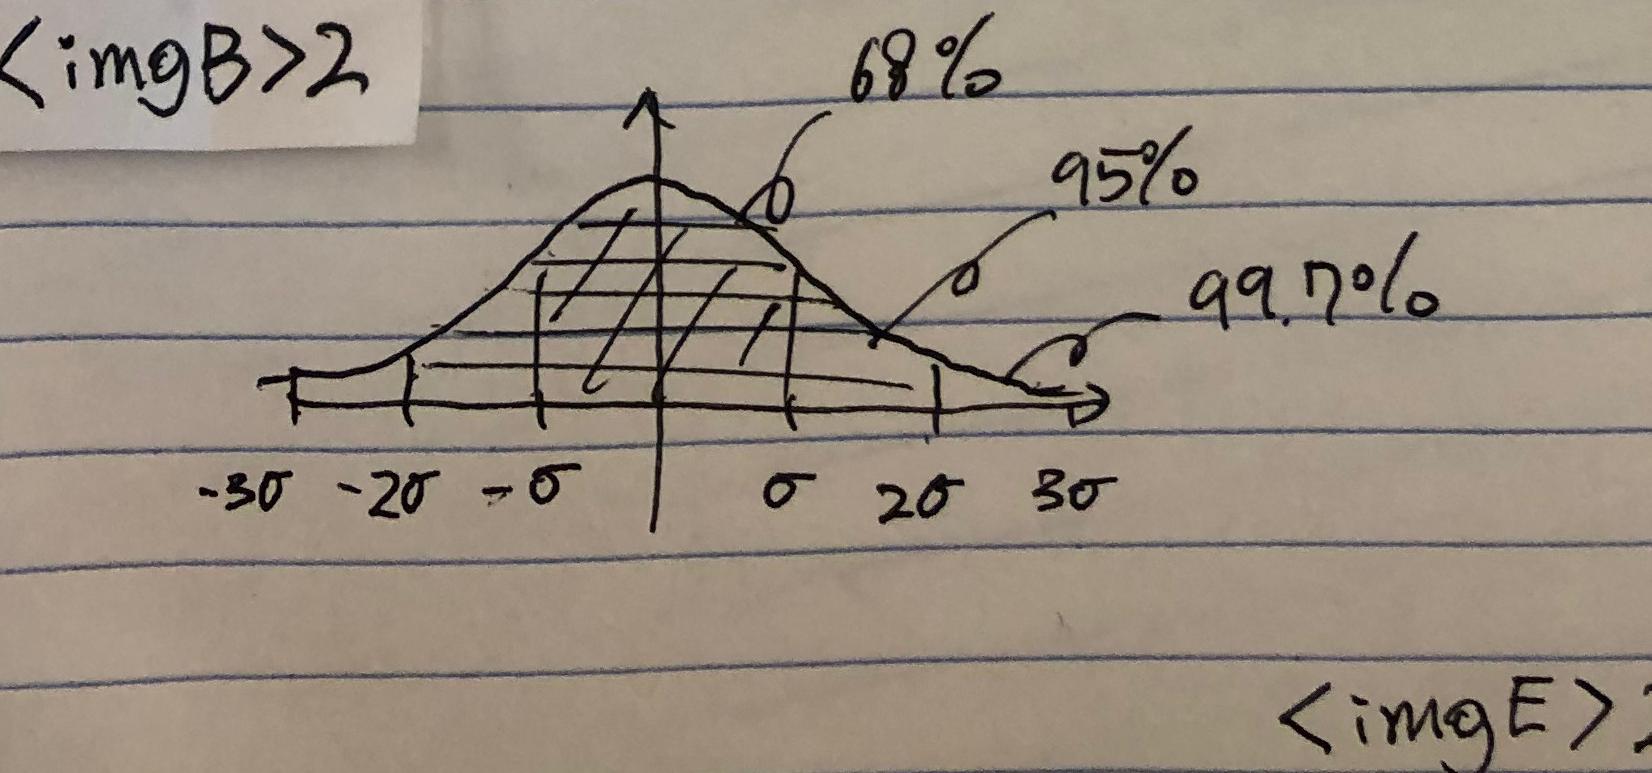 <imgB>2
68%
95%
99.7%
-3σ -2σ -σ σ 2σ 3σ
<imgE>